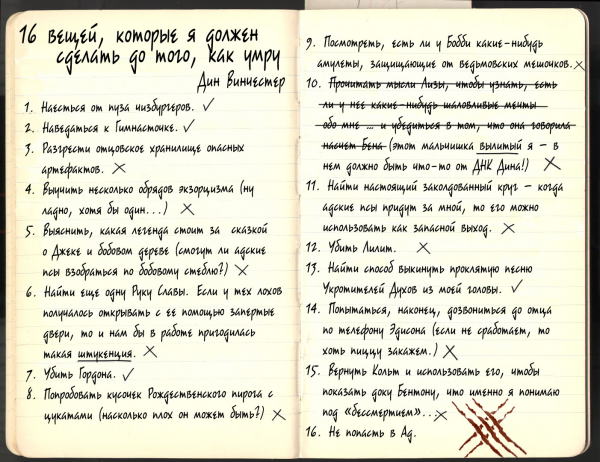 16 вещей, которые я должен
сделать до того, как умру
Дин Винчестер
1. Наесться от пуза чизбургеров. ✓
2. Наведаться к Гимнасточке. ✓
3. Разгрести отцовское хранилище опасных
артефактов. ✗
4. Выучить несколько обрядов экзорцизма (ну
ладно, хотя бы один...) ✗
5. Выяснить, какая легенда стоит за сказкой
о Джеке и бобовом дереве (смогут ли адские
псы взобраться по бобовому стеблю?) ✗
6. Найти еще одну Руку Славы. Если у тех лохов
получалось открывать с ее помощью запертые
двери, то и нам бы в работе пригодилась
такая штукенция. ✗
7. Убить Гордона. ✓
8. Попробовать кусочек Рождественского пирога с
цукатами (насколько плох он может быть?) ✗
9. Посмотреть, есть ли у Бобби какие-нибудь
амулеты, защищающие от ведьмовских мешочков. ✗
10. Прочитать мысли Лизы, чтобы узнать, есть
ли у нее какие-нибудь шаловливые мечты
обо мне ... и убедиться в том, что она говорила
насчет Бена (этот мальчишка вылитый я – в
нем должно быть что-то от ДНК Дина!) ✗
11. Найти настоящий заколдованный круг – когда
адские псы придут за мной, то его можно
использовать как запасной выход. ✗
12. Убить Лилит. ✗
13. Найти способ выкинуть проклятую песню
Укротителей Духов из моей головы. ✓
14. Попытаться, наконец, дозвониться до отца
по телефону Эдисона (если не сработает, то
хоть пиццу закажем.) ✗
15. Вернуть Кольт и использовать его, чтобы
показать доку Бентону, что именно я понимаю
под «бессмертием»... ✗
16. Не попасть в Ад.